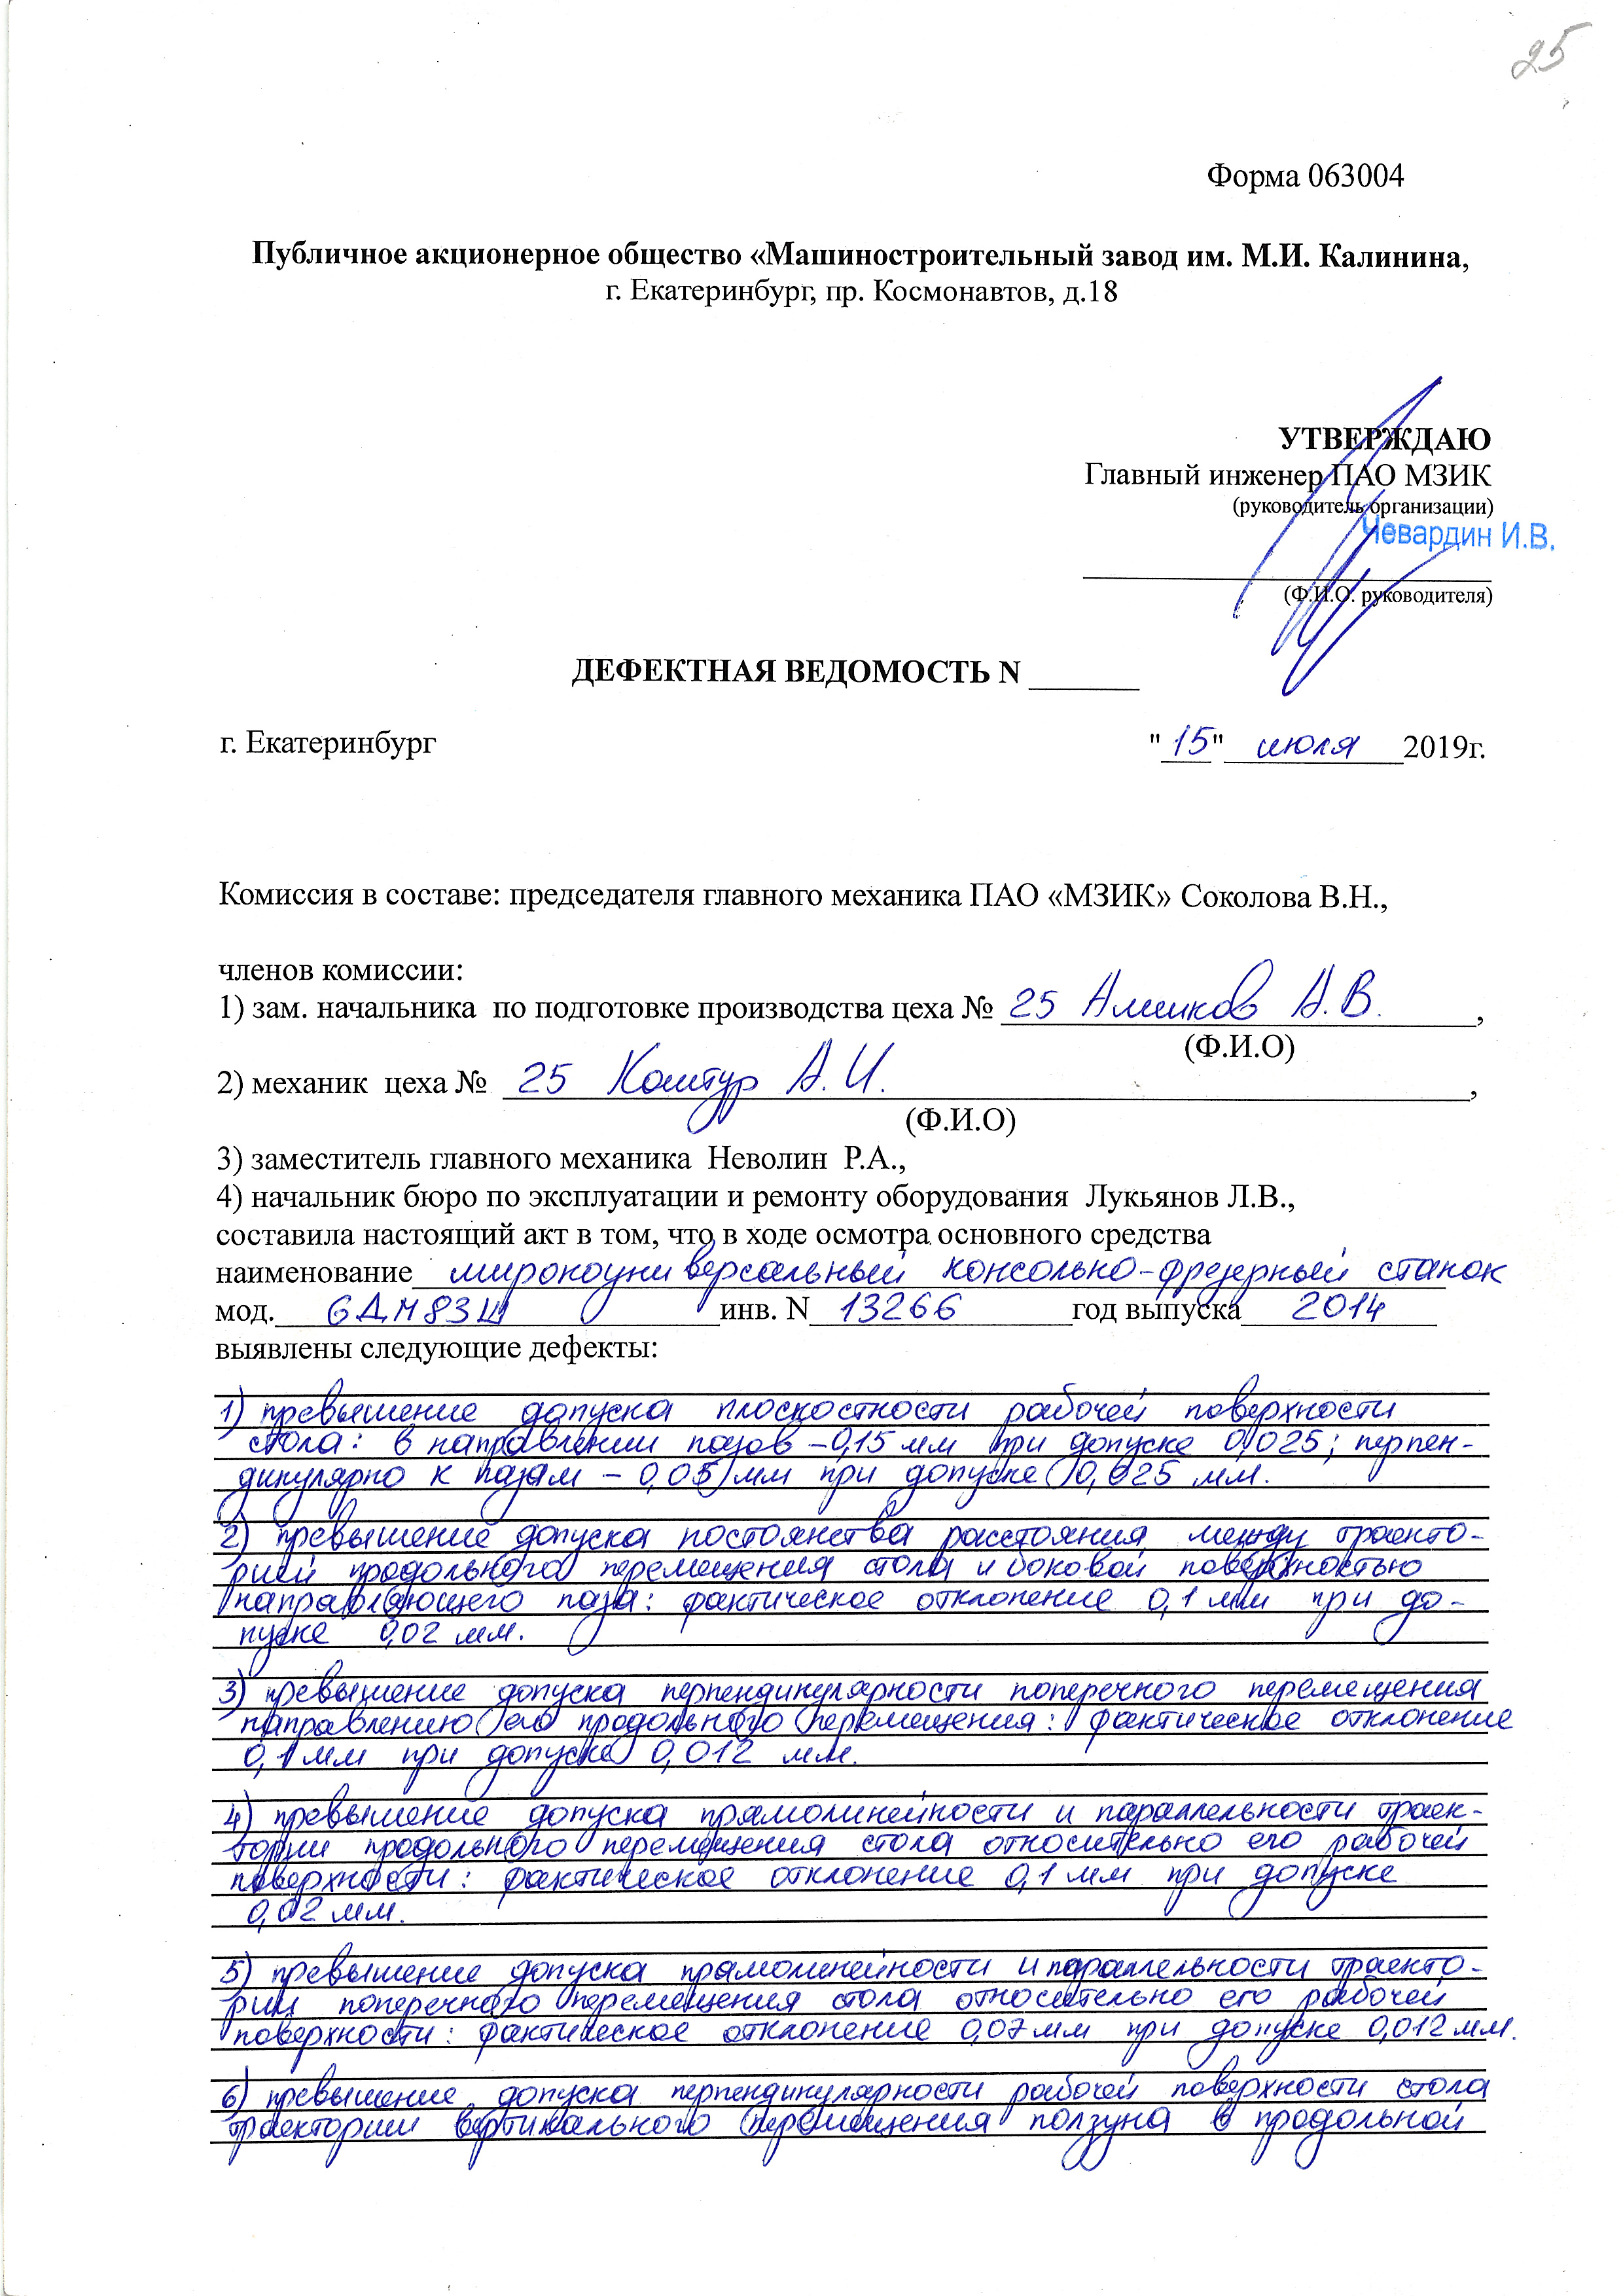 25
Форма 063004
Публичное акционерное общество «Машиностроительный завод им. М.И. Калинина,
г. Екатеринбург, пр. Космонавтов, д.18
УТВЕРЖДАЮ
Главный инженер ПАО МЗИК
(руководитель организации)
Чевардин И.В.
(Ф.И.О. руководителя)
ДЕФЕКТНАЯ ВЕДОМОСТЬ N
г. Екатеринбург "15" июля 2019г.
Комиссия в составе: председателя главного механика ПАО «МЗИК» Соколова В.Н.,
членов комиссии:
1) зам. начальника по подготовке производства цеха № 25 А.В.,
(Ф.И.О)
2) механик цеха № 25 Коштур А.И.,
(Ф.И.О)
3) заместитель главного механика Неволин Р.А.,
4) начальник бюро по эксплуатации и ремонту оборудования Лукьянов Л.В.,
составила настоящий акт в том, что в ходе осмотра основного средства
наименование широкоуниверсальный консольно-фрезерный станок
мод. 6ДМ83Ш инв. N 13266 год выпуска 2014
выявлены следующие дефекты:
1) превышение допуска плоскостности рабочей поверхности
стола: в направлении пазов – 0,15 мм при допуске 0,025; перпен-
дикулярно к пазам – 0,05 мм при допуске 0,025 мм.
2) превышение допуска постоянства расстояния между траекто-
рией продольного перемещения стола и боковой поверхностью
направляющего паза: фактическое отклонение 0,1 мм при до-
пуске 0,02 мм.
3) превышение допуска перпендикулярности поперечного перемещения
направлению его продольного перемещения: фактическое отклонение
0,1 мм при допуске 0,012 мм.
4) превышение допуска прямолинейности и параллельности траек-
тории продольного перемещения стола относительно его рабочей
поверхности: фактическое отклонение 0,1 мм при допуске
0,02 мм.
5) превышение допуска прямолинейности и параллельности траекто-
рии поперечного перемещения стола относительно его рабочей
поверхности: фактическое отклонение 0,07 мм при допуске 0,012 мм.
6) превышение допуска перпендикулярности рабочей поверхности стола
траектории вертикального перемещения ползуна в продольной